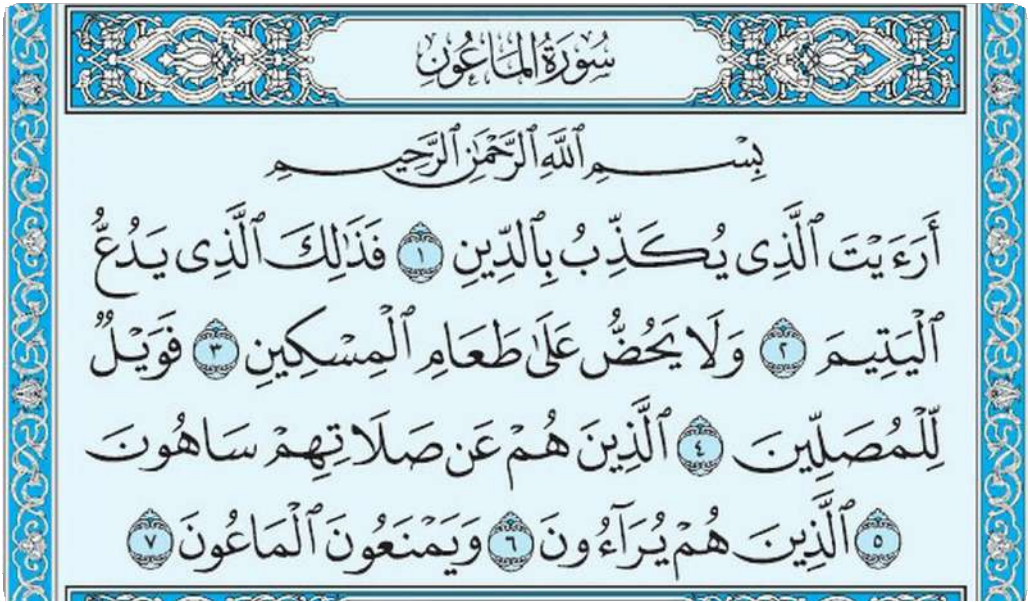 سُورَةُ الْمَاعُونِ
بِسْمِ ٱللَّهِ ٱلرَّحْمَٰنِ ٱلرَّحِيمِ
أَرَءَيْتَ ٱلَّذِى يُكَذِّبُ بِٱلدِّينِ ١ فَذَٰلِكَ ٱلَّذِى يَدُعُّ
ٱلْيَتِيمَ ٢ وَلَا يَحُضُّ عَلَىٰ طَعَامِ ٱلْمِسْكِينِ ٣ فَوَيْلٌ
لِّلْمُصَلِّينَ ٤ ٱلَّذِينَ هُمْ عَن صَلَاتِهِمْ سَاهُونَ
٥ ٱلَّذِينَ هُمْ يُرَآءُونَ ٦ وَيَمْنَعُونَ ٱلْمَاعُونَ ٧